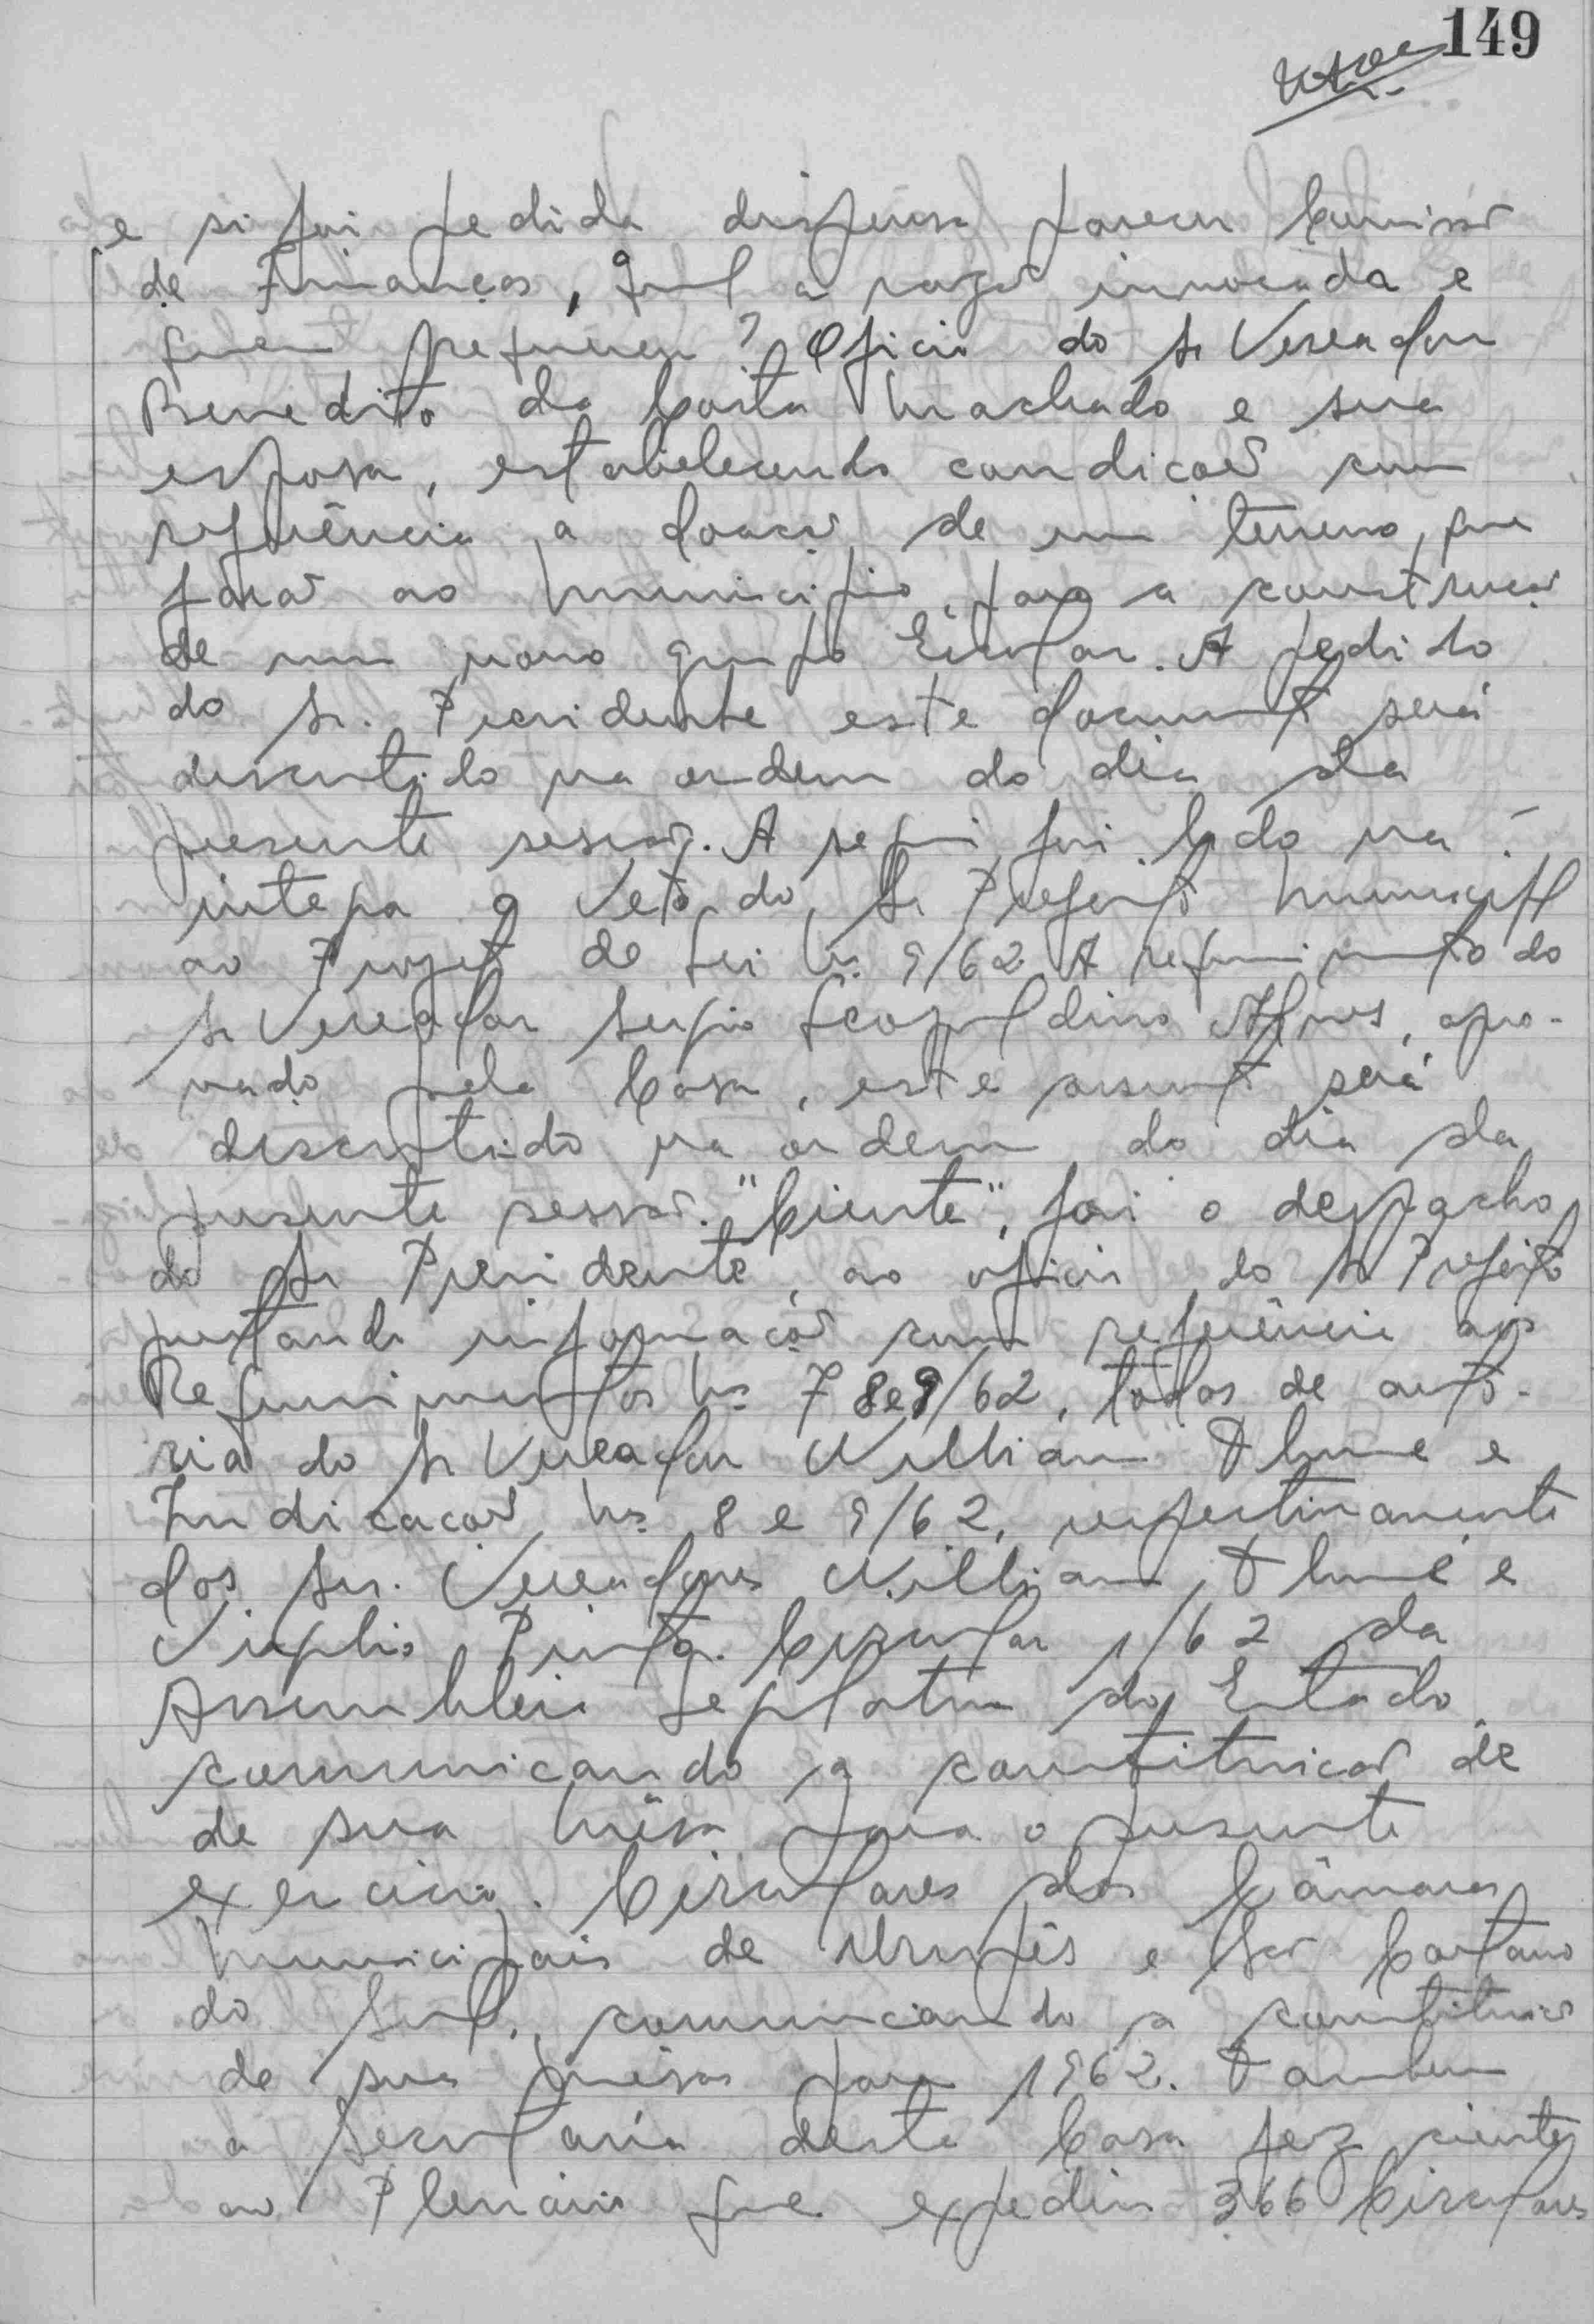 149
e si foi pedida dispensa parecer Comissão
de Finanças, qual a razão invocada e
quem requereu? Oficio do Sr Vereador
Benedito da Costa Machado e sua
esposa, estabelecendo condicões com
referência a doacão de um terreno, que
farão ao Municipio para a construcão
de um novo grupo Escolar. A pedido
do Sr. Presidente este documento será
discutido na ordem do dia da
presente sessão. A seguir foi lido na
integra o Veto do Sr Prefeito Municipal
ao Projeto de Lei Nº 9/62 A requerimento do
Sr Vereador Sergio Leopoldino Alves, apro-
vado pela Casa, este assunto será
discutido na ordem do dia da
presente sessão. "Ciente", foi o despacho
do Sr Presidente, ao oficio do Sr Prefeito
prestando informacões com referência aos
Requerimentos Nº 7 8 e 9/62, todos de auto-
ria do Sr Vereador Willian Thomé e
Indicacões Nº 8 e 9/62, respectivamente
dos Srs. Vereadores Willian Thomé e
Virgilio Pinto. Circular 1/62 da
Assembleia Legislativa do Estado
comunicando a constituicão de
de sua Mêsa para o presente
exercicio. Circulares das Câmaras
Municipais de Urupês e São Caetano
do Sul, comunicando a constituicão
de suas mêsas para 1962. Tambem
a Secretaria desta Casa fez ciente
ao Plenário que expediu 366 Circulares